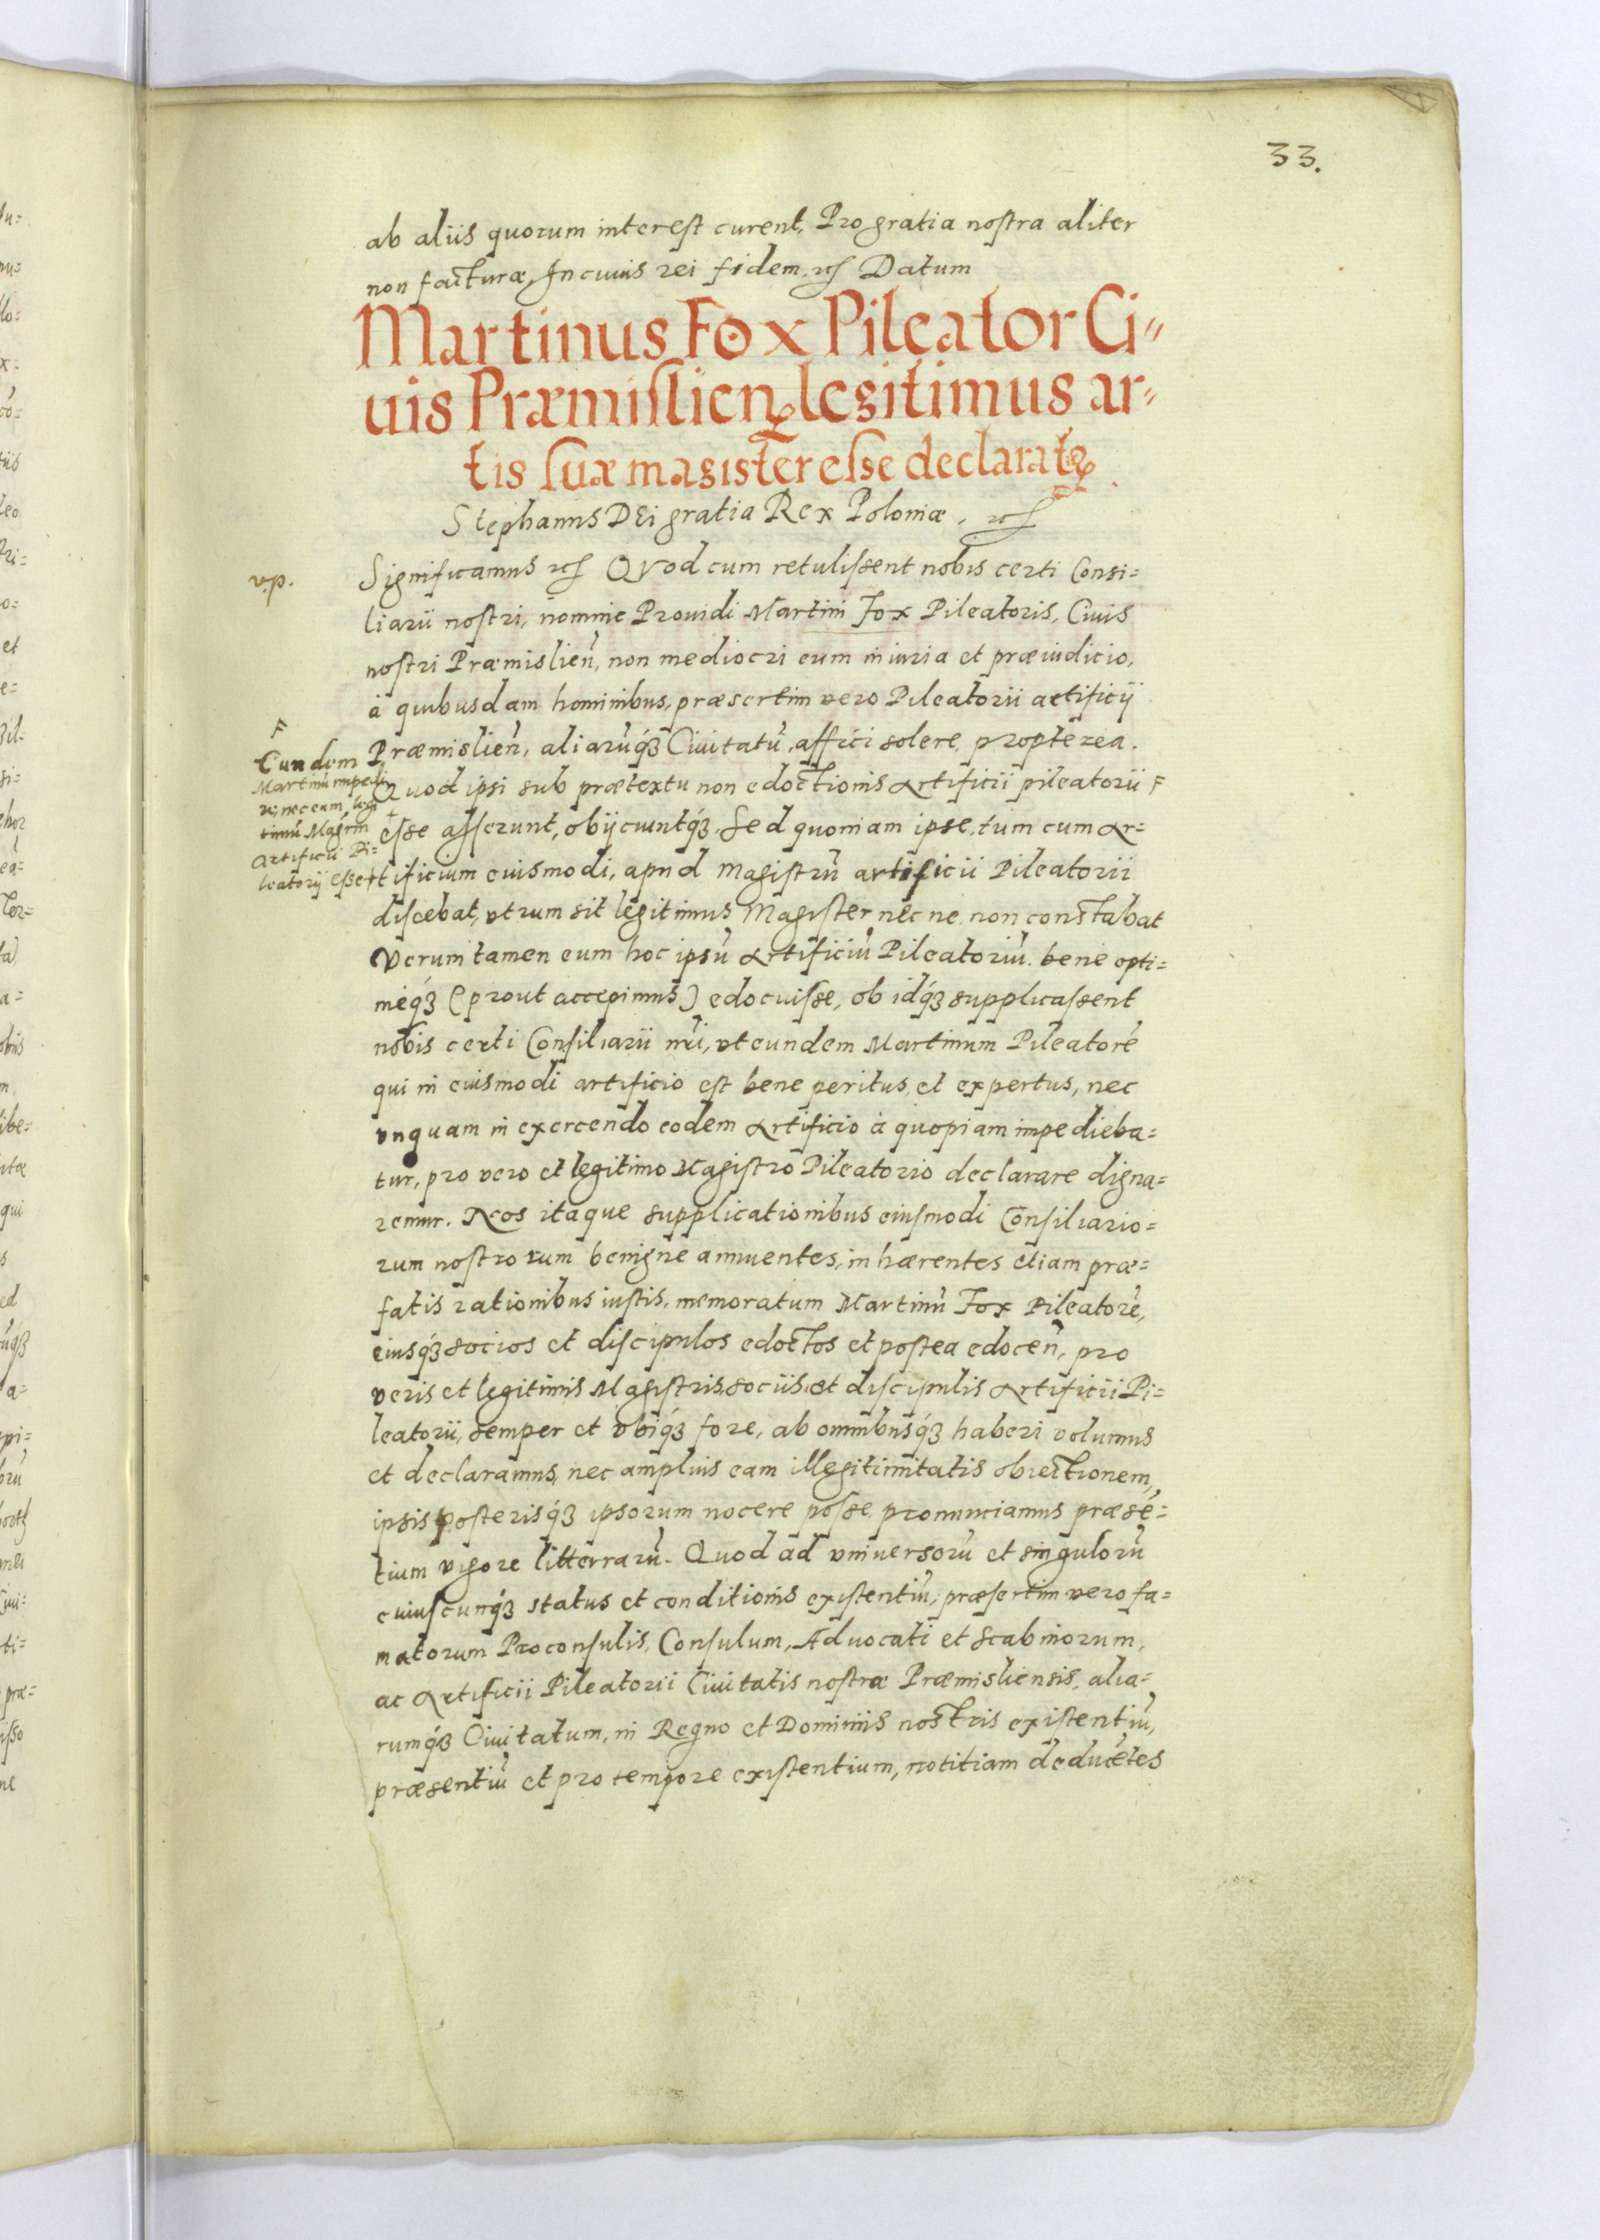 33.
ab aliis quorum interest curent, Pro gratia nostra aliter
non facturæ, In cuius rei fidem, Datum
Martinus Fox Pileator Ci=
uis Præmislien legitimus ar=
tis suæ magister esse declarat
Stephanus DEi gratia Rex Poloniæ,
v.p.
Significamus Quod cum retulissent nobis certi Consi=
liarii nostri, nomine Prouidi Martini Fox Pileatoris, Ciuis
nostri Præmislien̄, non mediocri eum iniuria et præiudicio,
à quibusdam hominibus, præsertim vero Pileatorii artificij
Præmislien̄, aliarūq́ꝫ Ciuitatū, affici solere, propterea.
Quod ipsi sub prætextu non edoctionis Artificii pileatorii F
F
Eundem
Martinū impedi
re, nec eum, legi
timū Magrm
Artificii Pi=
leatorij esse +
esse asserunt, obijciuntq́ꝫ, Sed quoniam ipse, tum cum Ar=
tificium euismodi, apud Magistrū artificii Pileatorii
discebat, vtrum sit legitimus Magister nec ne non constabat
Verumtamen eum hoc ipsū Artificiū Pileatoriū. bene opti=
méq́ꝫ (prout accepimus) edocuisse, ob idq́ꝫ supplicassent
nobis certi Consiliarii nr̄i, vt eundem Martinum Pileatorē
qui in eiusmodi artificio est bene peritus, et expertus, nec
vnquam in exercendo eodem Artificio à quopiam impedieba=
tur, pro vero et legitimo Magistro Pileatorio declarare digna=
remur. Nos itaque supplicationibus eiusmodi Consiliario=
rum nostrorum benigne annuentes, inhærentes etiam præ=
fatis rationibus iustis, memoratum Martinū Fox Pileatorē,
eiusq́ꝫ socios et discipulos edoctos et postea edocen̄, pro
veris et legitimis Magistris, sociis, et discipulis Artificii Pi=
leatorii, semper et vbiq́ꝫ fore, ab omnibusq́ꝫ haberi volumus
et declaramus, nec amplius eam illegitimitatis obiectionem,
ipsis posterisq́ꝫ ipsorum nocere posse, pronunciamus præsē=
tium vigore litterrarū. Quod ad vniuersorū et singulorū
cuiuscunq́ꝫ status et conditionis existentiū, præsertim vero fa=
matorum Proconsulis, Consulum, Aduocati et Scabinorum,
ac Artificii Pileatorii Ciuitatis nostræ Præmisliensis, alia=
rumq́ꝫ Ciuitatum, in Regno et Dominiis nostris existentiū,
præsentiū et pro tempore existentium, notitiam deducētes